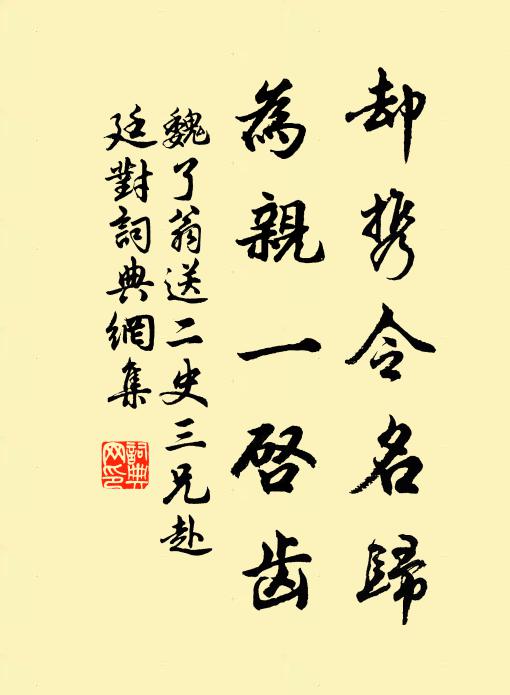 却携令名歸
為親一啓齿
魏了翁送二史三兄赴
廷對詞典網集
詞典網印